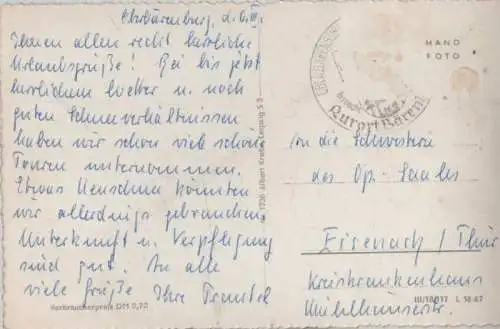 Oberbärenburg, d. 6. III.
Ihnen allen recht herzliche
Urlaubsgrüße! Bei bis jetzt
herrlichem Wetter u. noch
guten Schneeverhältnissen
haben wir schon viel schöne
Touren unternommen.
Etwas Neuschnee könnten
wir allerdings gebrauchen.
Unterkunft u. Verpflegung
sind gut. An alle
viele Grüße Ihre
Verbraucherpreis DM 0,20
Albert Kreher Leipzig S 3
HAND
FOTO
Kurort Bärenburg
An die Schwestern
des Op.-Saales
Eisenach / Thür
Kreiskrankenhaus
Mühlhäuserstr.
III/18/117 L 18 67